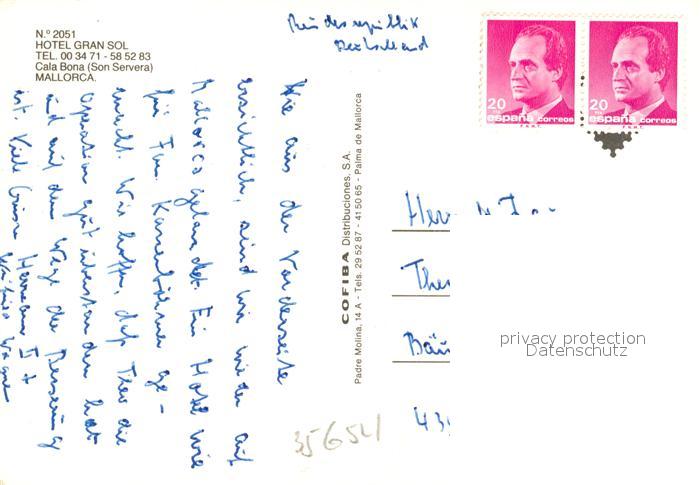 N.º 2051
HOTEL GRAN SOL
TEL. 00 34 71 - 58 52 83
Cala Bona (Son Servera)
MALLORCA.
Bundesrepublik
Deutschland
20
españa correos
F.N.M.T.
20
españa correos
F.N.M.T.
Wie aus der Vorderseite
ersichtlich, sind wir wieder auf
Mallorca gelandet. Ein Hotel wie
für Fam. ge-
macht. Wir hoffen, daß Theo die
Operation gut überstanden hat
und auf dem Wege der Besserung
ist. Viele Grüsse Hermann
COFIBA Distribuciones, S.A.
Padre Molina, 14 A - Tels. 29 52 87 - 41 50 65 - Palma de Mallorca
Herr
Theo
privacy protection
Datenschutz
43
35654